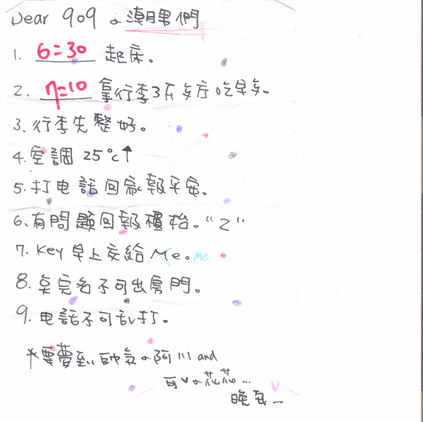 Dear 909の潮男們
1. 6=30 起床。
2. 7=10 拿行李3F交房吃早反。
3. 行李先整好。
4. 空調 25℃↑
5. 打电話回家報平安。
6. 有問題回報櫃枱。"2"
7. Key 早上交給 Me。me
8. 莫名不可出房門。
9. 电話不可乱打。
*要夢到帥氣の阿川 and
可の花花...
晚安...